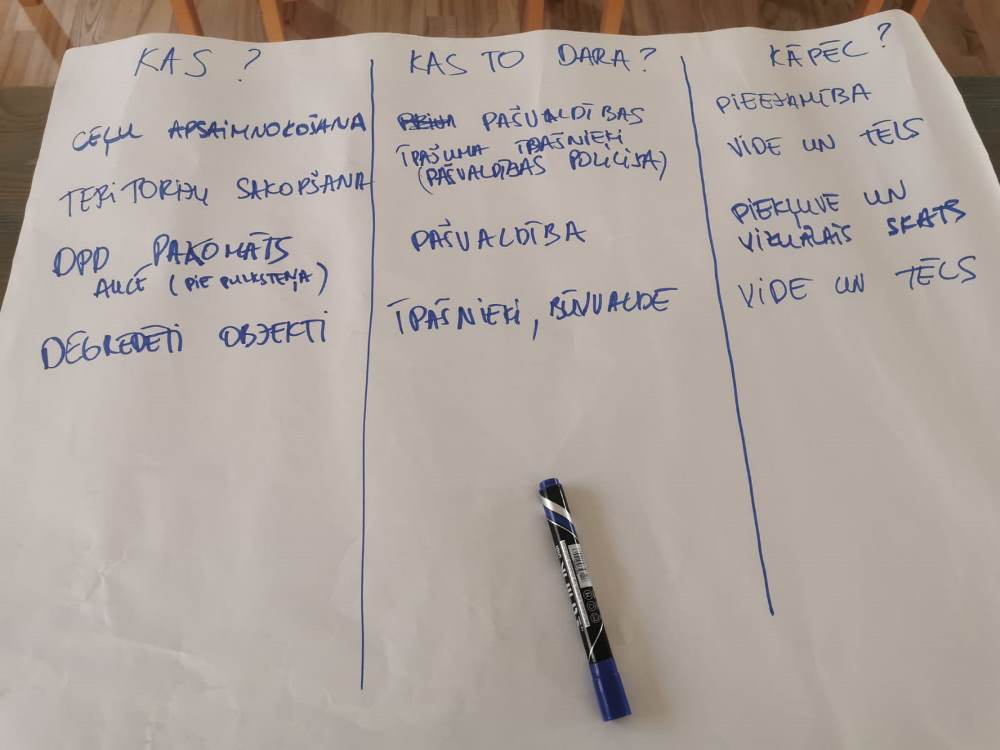 KAS ?
CEĻU APSAIMNOKOŠANA
TERITORIJU SAKOPŠANA
DPD PAKOMĀTS
AUCĒ (PIE PULKSTEŅA)
DEGREDĒTI OBJEKTI
KAS TO DARA?
PAŠVALDĪBAS
ĪPAŠUMA ĪPAŠNIEKI
(PAŠVALDĪBAS POLICIJA)
PAŠVALDĪBA
ĪPAŠNIEKI, BŪVVALDE
KĀPĒC?
PIEEJAMĪBA
VIDE UN TĒLS
PIEKĻUVE UN
VIZUĀLAIS SKATS
VIDE UN TĒLS